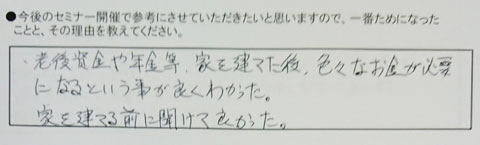 ●今後のセミナー開催で参考にさせていただきたいと思いますので、一番ためになった
ことと、その理由を教えてください。
・老後資金や年金等、家を建てた後、色々なお金が必要
になるという事が良くわかった。
家を建てる前に聞けて良かった。